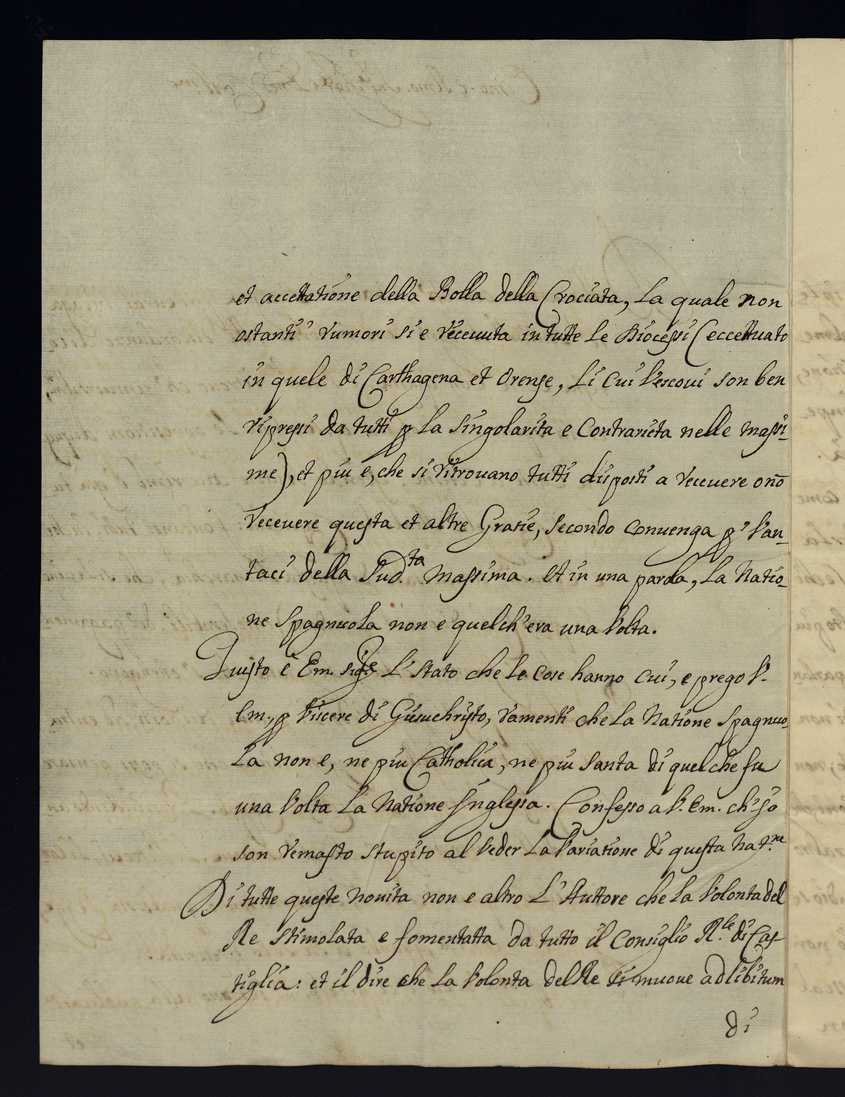 et accettatione della Bolla della Crociata, la quale non
ostanti i rumori si e recevuta in tutte le Diocesi (eccettuato
in quele di Carthagena et Orense, li cui Vescovi son ben
ripresi da tutti p la singolarita e contrarieta nelle massi-
me), et piu e, che si ritrovano tutti disposti a recevere o nõ
recevere questa et altre Gratie, secondo convenga p i Van-
taci della sud.ta massima. Et in una parola, la Natio-
ne Spagnuola non e quelch'era una Volta.
Questo è Em. Sig.e L'stato che le cose hanno cui, e prego V.
Em., p Viscere di Giesuchristo, ramenti che la Natione Spagnuo-
la non e, ne piu Catholica, ne piu santa di quel che fu
una Volta la Natione Inglessa. Confesso a V. Em. ch'jo
son remasto stupito al veder la Variatione di questa Nat.ne
Di tutte queste novita non e altro L'Auttore che la Volonta del
Re stimolata e fomentatta da tutto il Consiglio R.le di Cas-
tiglia: et il dire che la Volonta del Re si muove ad libitum
di